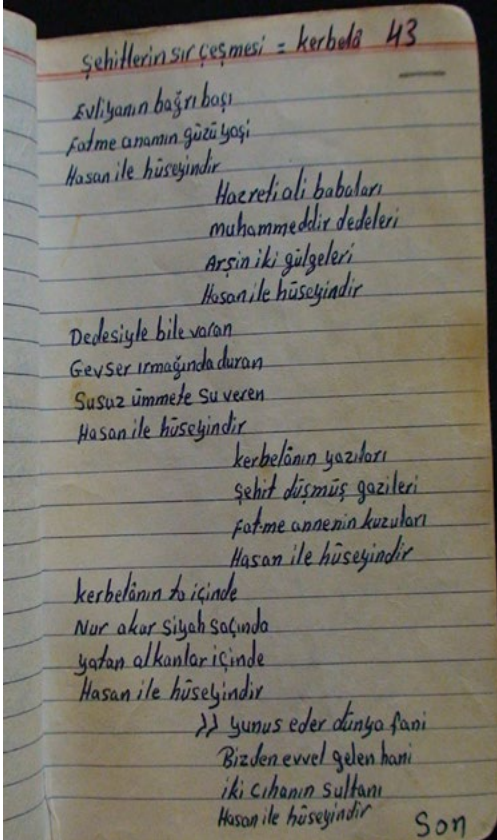 Şehitlerin sır çeşmesi = kerbelâ 43
Evliyanın bağrı başı
Fatme anamın gözü yaşi
Hasan ile hüseyindir
Hazreti ali babaları
muhammeddir dedeleri
Arşin iki gülgeleri
Hasan ile hüseyindir
Dedesiyle bile varan
Gevser ırmağında duran
Susuz ümmete su veren
Hasan ile hüseyindir
kerbelânın yazıları
şehit düşmüş gazileri
fatme annenin kuzuları
Hasan ile hüseyindir
kerbelânın ta içinde
Nur akar siyah saçında
yatan alkanlar içinde
Hasan ile hüseyindir
yunus eder dünya fani
Bizden evvel gelen hani
iki cıhanın sultanı
Hasan ile hüseyindir
Son